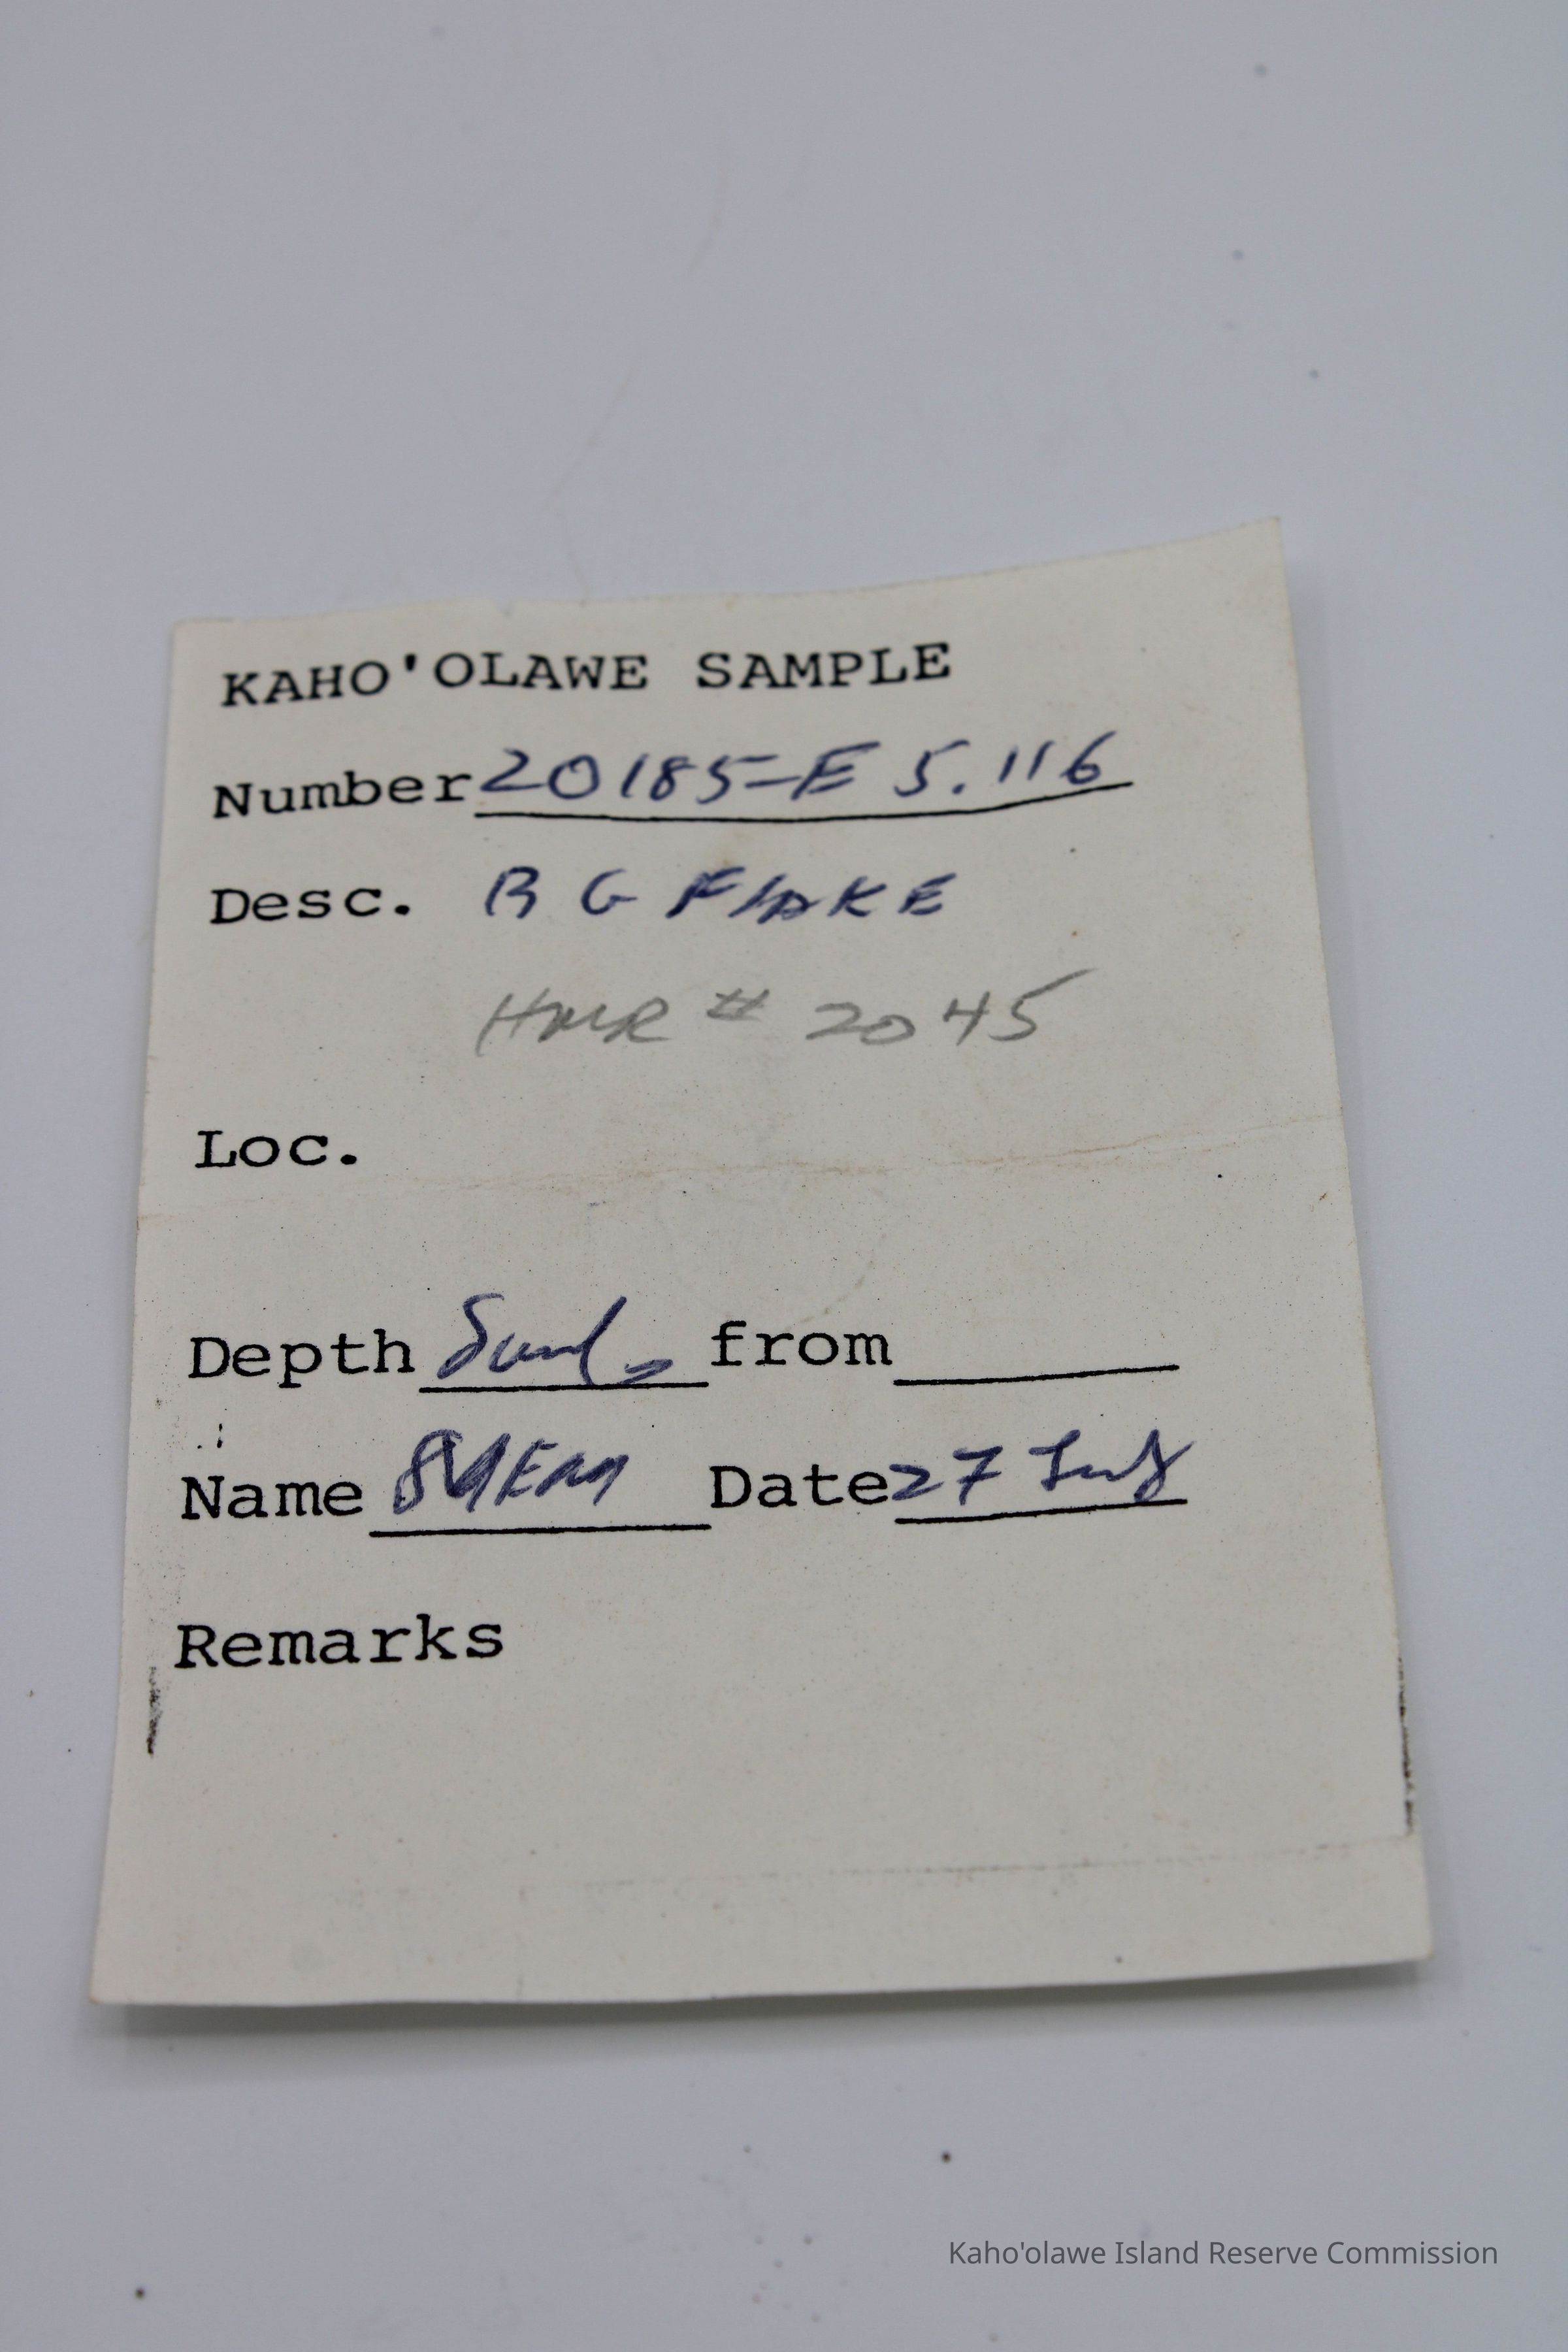 KAHO'OLAWE SAMPLE
Number 20185-E 5.116
Desc. B G FLAKE
HMR # 2045
Loc.
Depth from
Name Date 27 July
Remarks
Kaho'olawe Island Reserve Commission